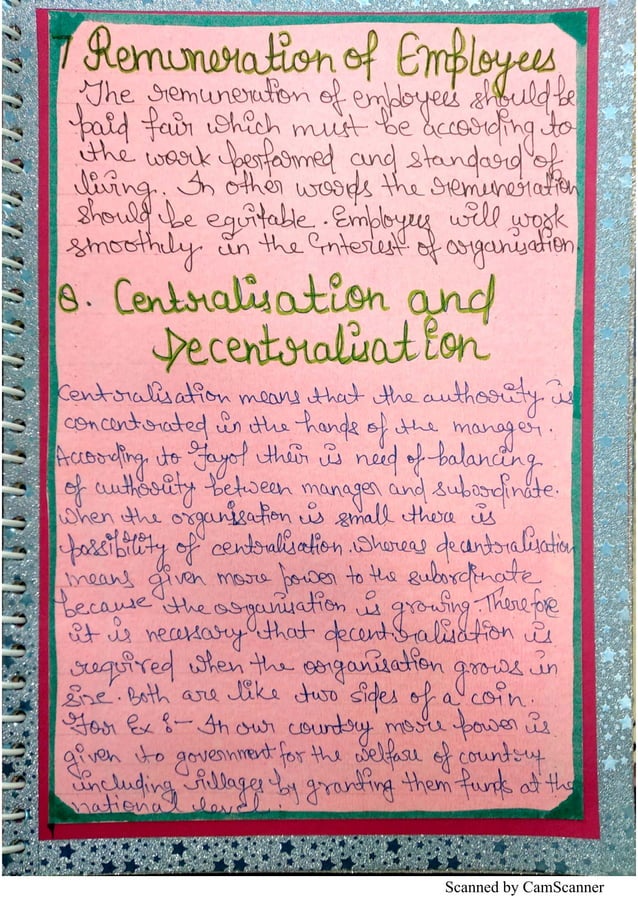 7 Remuneration of Employees
The remuneration of employees should be
paid fair which must be according to
the work performed and standard of
living. In other words the remuneration
should be equitable. Employees will work
smoothly in the interest of organisation.
8. Centralisation and
Decentralisation
Centralisation means that the authority is
concentrated in the hands of the manager.
According to Fayol their is need of balancing
of authority between manager and subordinate.
When the organisation is small there is
possibility of centralisation. whereas decentralisation
means given more power to the subordinate
because the organisation is growing. Therefore
it is necessary that decentralisation is
required when the organisation grows in
size. Both are like two sides of a coin.
For Ex :- In our country more power is
given to government for the welfare of country
including villages by granting them funds at the
national level.
Scanned by CamScanner